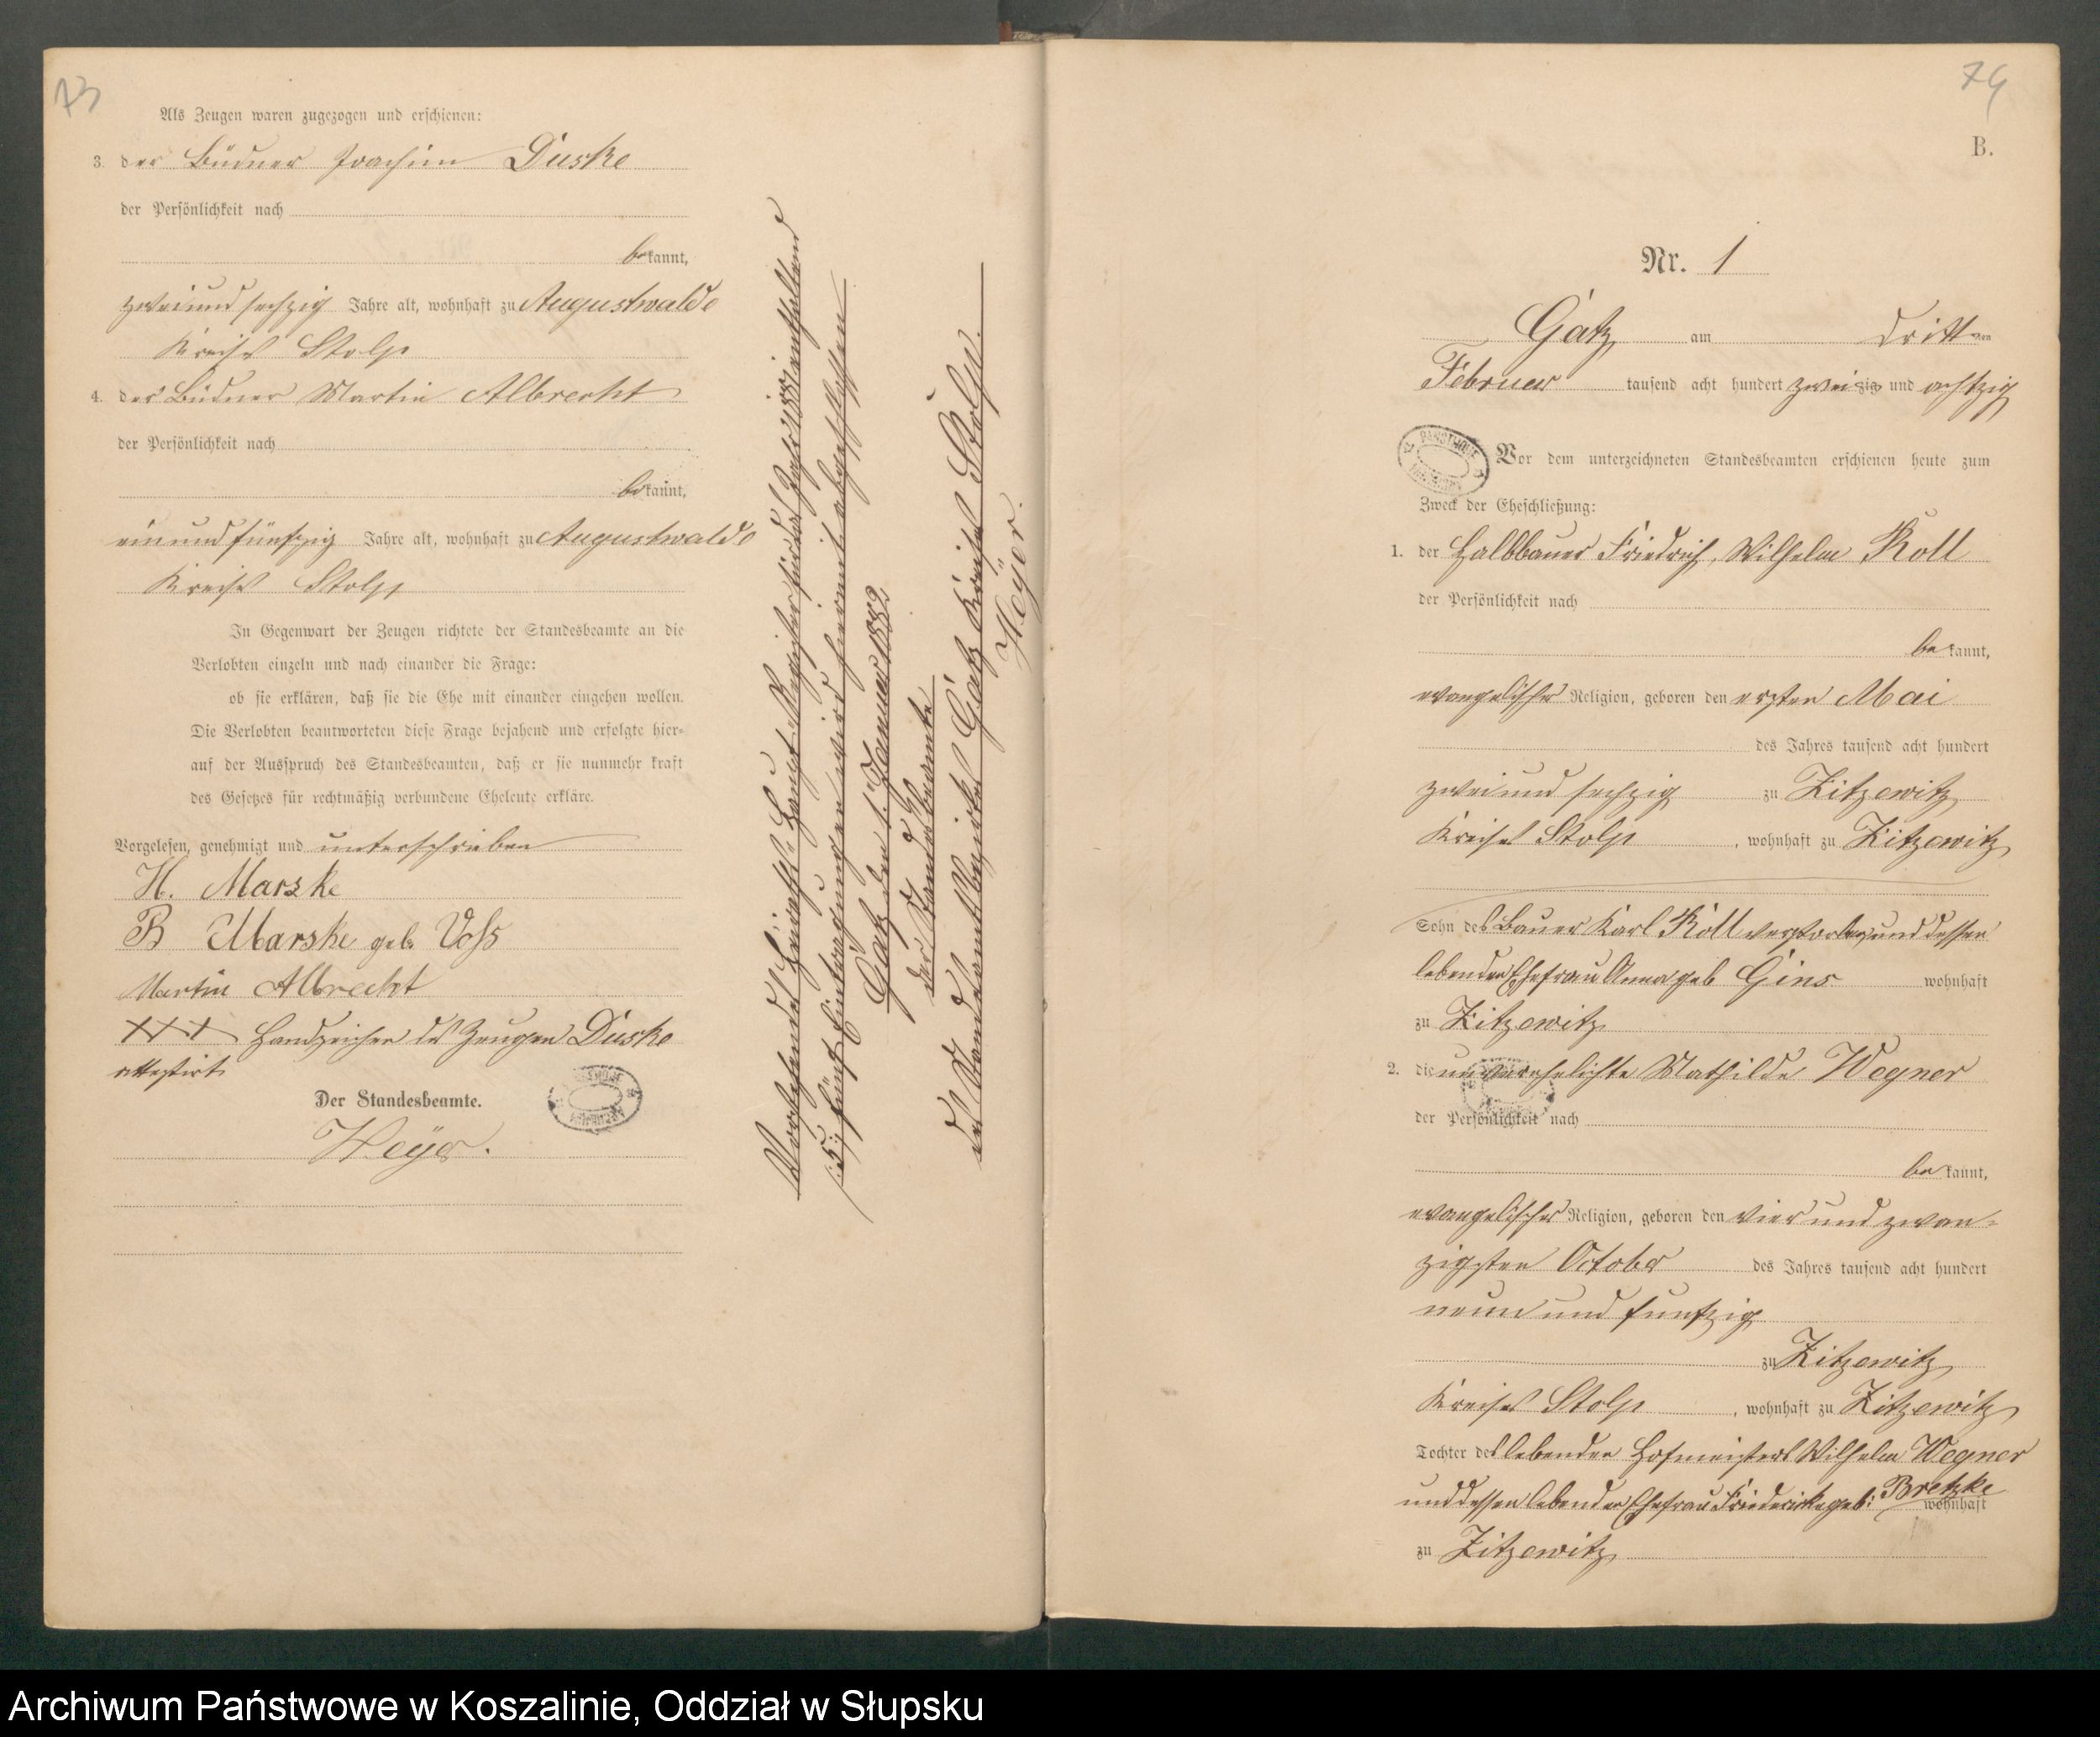 73
Als Zeugen waren zugezogen und erschienen:
3. der Büdner Joachim Duske
der Persönlichkeit nach
bekannt,
zweiundsechzig Jahre alt, wohnhaft zu Augustwalde
Kreises Stolp
4. der Büdner Martin Albrecht
der Persönlichkeit nach
bekannt,
einundfünfzig Jahre alt, wohnhaft zu Augustwalde
Kreises Stolp
In Gegenwart der Zeugen richtete der Standesbeamte an die
Verlobten einzeln und nach einander die Frage:
ob sie erklären, daß sie die Ehe mit einander eingehen wollen.
Die Verlobten beantworteten diese Frage bejahend und erfolgte hier-
auf der Ausspruch des Standesbeamten, daß er sie nunmehr kraft
des Gesetzes für rechtmäßig verbundene Eheleute erkläre.
Vorgelesen, genehmigt und unterschrieben
H. Marske
B Marske geb. Voss
Martin Albrecht
+++ Handzeichen des Zeugen Duske
attestirt
Der Standesbeamte.
Heyer.
Vorstehendes Heiraths-Haupt-Register für das Jahr 1881 enthaltend
:5: fünf Eintragungen wird hiermit abgeschlossen
Gatz den 1. Januar 1882
Der Standesbeamte
des Standesamtsbezirks Gatz Kreises Stolp.
Heyer.
74
B.
Nr. 1
Gatz am dritten
Februar tausend acht hundert zweizig und achtzig
Vor dem unterzeichneten Standesbeamten erschienen heute zum
Zweck der Eheschließung:
1. der Halbbauer Friedrich Wilhelm Koll
der Persönlichkeit nach
bekannt,
evangelischer Religion, geboren den ersten Mai
des Jahres tausend acht hundert
zweiundsechzig zu Zitzewitz
Kreises Stolp, wohnhaft zu Zitzewitz
Sohn des Bauer Karl Koll verstorben und dessen
lebenden Ehefrau Anna geb Gins wohnhaft
zu Zitzewitz
2. die unverehelichte Mathilde Wegner
der Persönlichkeit nach
bekannt,
evangelischer Religion, geboren den vierundzwan-
zigsten October des Jahres tausend acht hundert
neun und funfzig
zu Zitzewitz
Kreises Stolp, wohnhaft zu Zitzewitz
Tochter des lebenden Hofmeisters Wilhelm Wegner
und dessen lebenden Ehefrau Friederike geb: Bretzke wohnhaft
zu Zitzewitz
Archiwum Państwowe w Koszalinie, Oddział w Słupsku